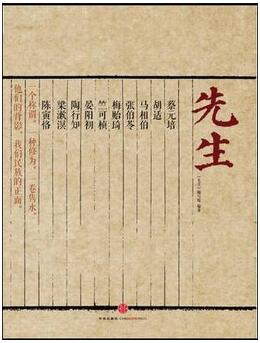 先生
《先生》编写组 编著
蔡元培
胡适
马相伯
张伯苓
梅贻琦
竺可桢
晏阳初
陶行知
梁漱溟
陈寅恪
一个称谓，一种修为，一卷隽永，
他们的背影，我们民族的正面。
中信出版社·CHINACITICPRESS